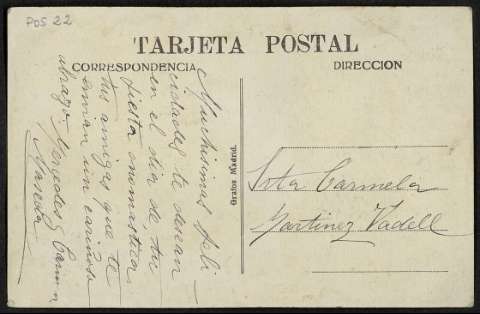 POS 22
TARJETA POSTAL
CORRESPONDENCIA
DIRECCION
Muchisimas feli
cidades te desean
en el dia de tu
fiesta onomastica
tus amigas que te
envian un cariñoso
abrazo Mercedes y Carmen
Grafos Madrid.
Srta Carmela
Martinez Vadell